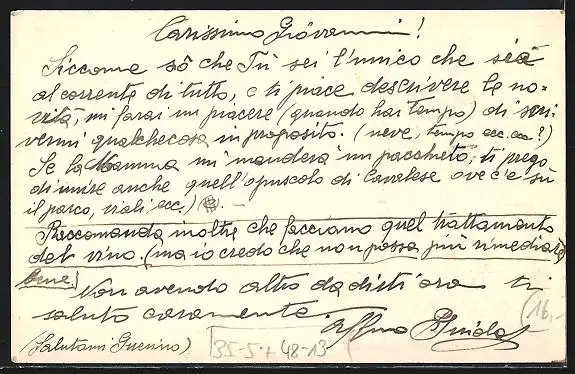 Carissimo Giovanni!
Siccome sò che Tu sei l'unico che sia
al corrente di tutto, e ti piace descrivere le no-
vità, mi farai un piacere (quando hai tempo) di scri
vermi qualchecosa in proposito. (neve, tempo ecc. ecc?)
Se la Mamma mi manderà un pacchieto, ti prego
di unire anche quell'opuscolo di Cavalese ove c'è sù
il parco, viali ecc.)
Raccomanda inoltre che facciano quel trattamento
del vino. (ma io credo che non possa più rimediare
bene.)
Non avendo altro da dirti ora ti
saluto caramente.
(Salutami Guerino)
35-5+48-13
(16.-